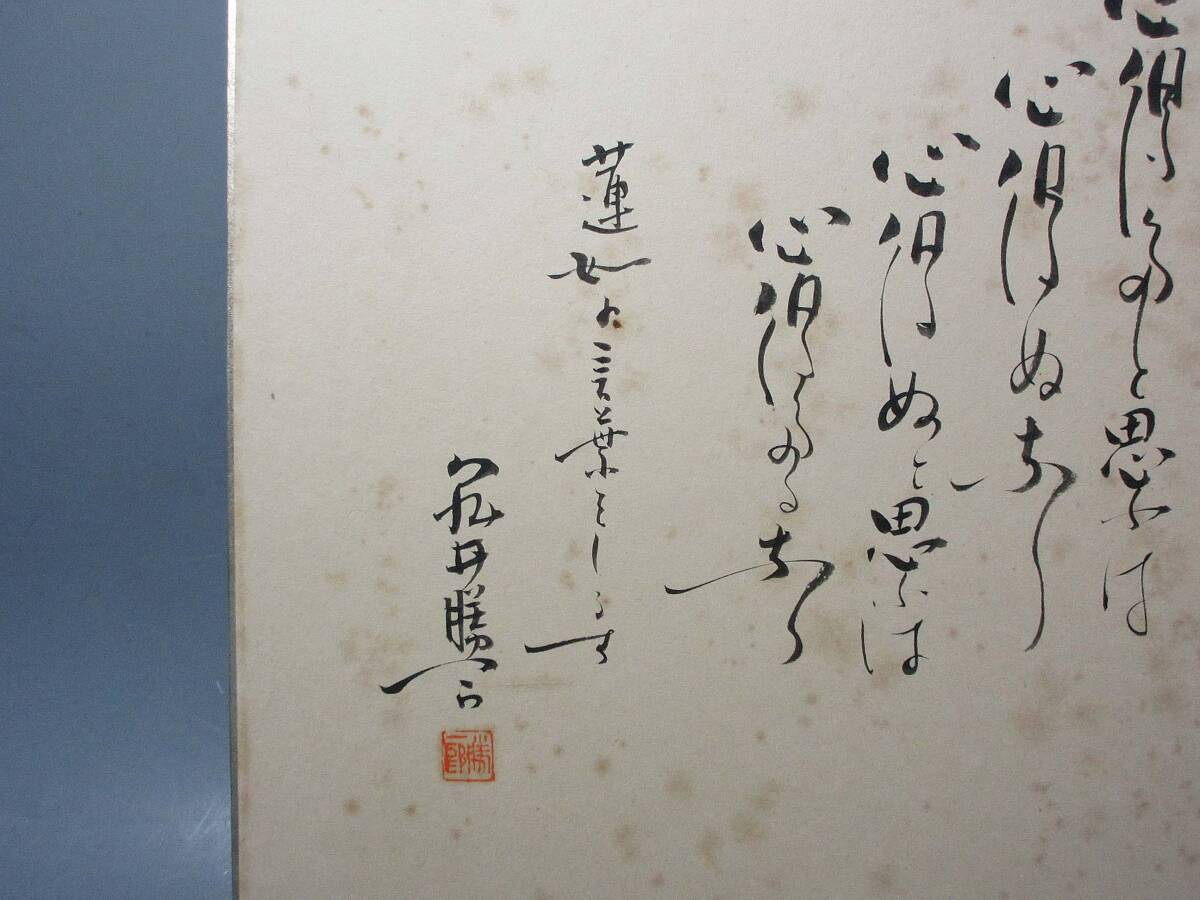 心得たと思ふは
心得ぬなり
心得ぬと思ふは
心得たるなり
蓮如の言葉をしるす
亀井勝一郎
勝一郎